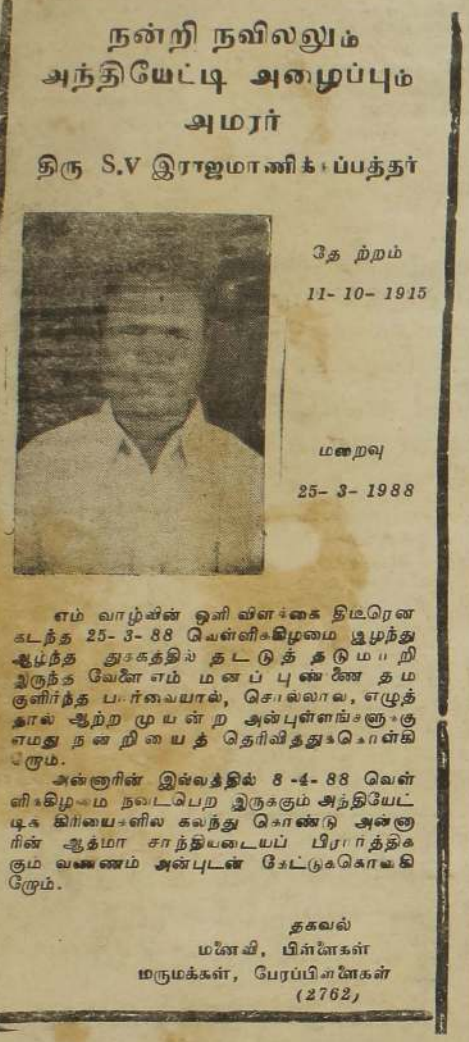 நன்றி நவிலலும்
அந்தியேட்டி அழைப்பும்
அமரர்
திரு S.V இராஜமாணிக்கப்பத்தர்
தோற்றம்
11-10-1915
மறைவு
25-3-1988
எம் வாழ்வின் ஒளி விளக்கை திடீரென
கடந்த 25-3-88 வெள்ளிக்கிழமை இழந்து
ஆழ்ந்த துக்கத்தில் தட்டுத் தடுமாறி
இருந்த வேளை எம் மனப் புண்ணை தம்
குளிர்ந்த பார்வையால், சொல்லால், எழுத்
தால் ஆற்ற முயன்ற அன்புள்ளங்களுக்கு
எமது நன்றியைத் தெரிவித்துக்கொள்கி
றோம்.
அன்னாரின் இல்லத்தில் 8-4-88 வெள்
ளிக்கிழமை நடைபெற இருக்கும் அந்தியேட்
டிக் கிரியைகளில் கலந்து கொண்டு அன்னா
ரின் ஆத்மா சாந்தியடையப் பிரார்த்திக்
கும் வண்ணம் அன்புடன் கேட்டுக்கொள்கி
றோம்.
தகவல்
மனைவி, பிள்ளைகள்
மருமக்கள், பேரப்பிள்ளைகள்
(2762)